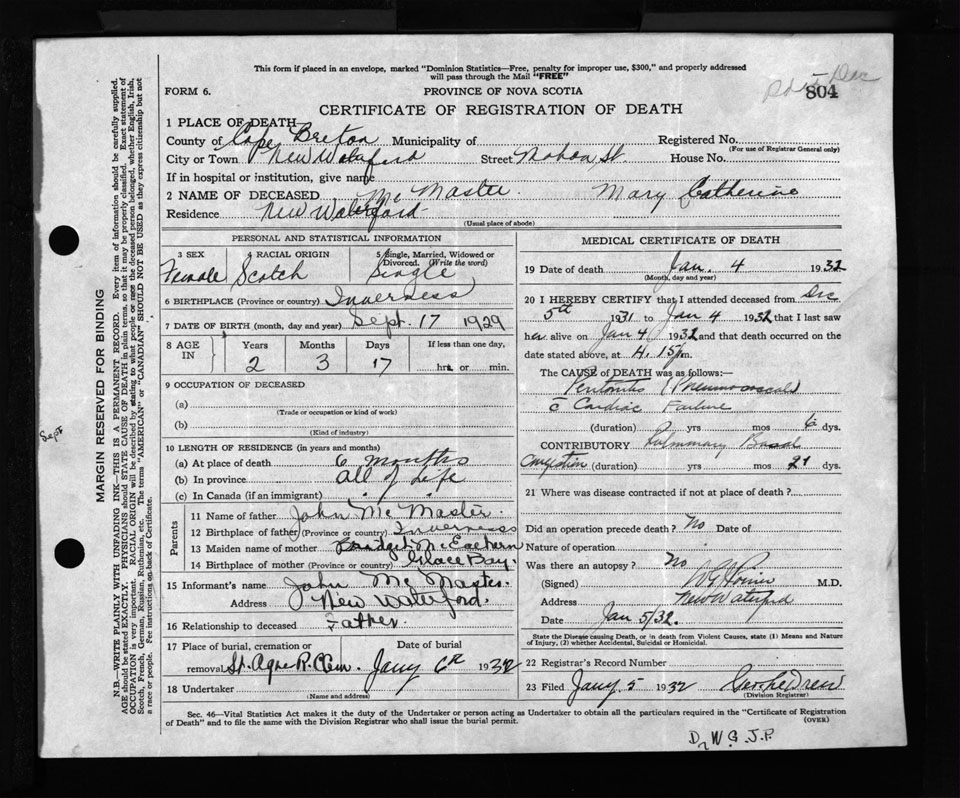 This form if placed in an envelope, marked "Dominion Statistics—Free, penalty for improper use, $300," and properly addressed
will pass through the Mail "FREE"
FORM 6.
PROVINCE OF NOVA SCOTIA
804
CERTIFICATE OF REGISTRATION OF DEATH
1 PLACE OF DEATH
County of Cape Breton Municipality of
Registered No.
(For use of Registrar General only)
City or Town New Waterford Street House No.
If in hospital or institution, give name
2 NAME OF DECEASED Mc Master Mary Catherine
Residence New Waterford
(Usual place of abode)
PERSONAL AND STATISTICAL INFORMATION
3 SEX Female
4 RACIAL ORIGIN Scotch
5 Single, Married, Widowed or Divorced. (Write the word) Single
6 BIRTHPLACE (Province or country) Inverness
7 DATE OF BIRTH (month, day and year) Sept. 17 1929
8 AGE IN
Years Months Days If less than one day,
2 3 17 hrs. or min.
9 OCCUPATION OF DECEASED
(a)
(Trade or occupation or kind of work)
(b)
(Kind of industry)
10 LENGTH OF RESIDENCE (in years and months)
(a) At place of death 6 months
(b) In province all of Life
(c) In Canada (if an immigrant) " " "
Parents
11 Name of father John Mc Master.
12 Birthplace of father (Province or country) Inverness
13 Maiden name of mother Bridget McEachern
14 Birthplace of mother (Province or country) Glace Bay.
15 Informant's name John Mc Master.
Address New Waterford.
16 Relationship to deceased Father.
17 Place of burial, cremation or Date of burial
removal St. Agne R.C. Cem. Jany 6th 1932
18 Undertaker
(Name and address)
MEDICAL CERTIFICATE OF DEATH
19 Date of death Jan. 4 1932
(Month, day and year)
20 I HEREBY CERTIFY that I attended deceased from Dec
5th 1931 to Jan 4 1932 that I last saw
her alive on Jan 4 1932 and that death occurred on the
date stated above, at 4.15 p.m.
The CAUSE of DEATH was as follows:
Peritonitis
c̄ Cardiac Failure
(duration) yrs mos 6 dys.
CONTRIBUTORY Pulmonary Basal
Congestion (duration) yrs mos 21 dys.
21 Where was disease contracted if not at place of death?
Did an operation precede death? No Date of
Nature of operation
Was there an autopsy? No
(Signed) M.D.
Address New Waterford
Date Jan 5/32.
State the Disease causing Death, or in death from Violent Causes, state (1) Means and Nature
of Injury, (2) whether Accidental, Suicidal or Homicidal.
22 Registrar's Record Number
23 Filed Jany 5 1932
(Division Registrar)
Sec. 46—Vital Statistics Act makes it the duty of the Undertaker or person acting as Undertaker to obtain all the particulars required in the "Certificate of Registration
of Death" and to file the same with the Division Registrar who shall issue the burial permit.
(OVER)
Dr W.G. J.P.
MARGIN RESERVED FOR BINDING
Sept
N.B.—WRITE PLAINLY WITH UNFADING INK—THIS IS A PERMANENT RECORD. Every item of information should be carefully supplied.
AGE should be stated EXACTLY. PHYSICIANS should STATE CAUSE OF DEATH in plain terms, so that it may be properly classified. Exact statement of
OCCUPATION is very important. RACIAL ORIGIN will be described by stating to what people or race the deceased person belonged, whether English, Irish,
Scotch, French, German, Russian, Ruthenian, etc. The terms "AMERICAN" or "CANADIAN" SHOULD NOT BE USED as they express citizenship but not
a race or people. See instructions on back of Certificate.